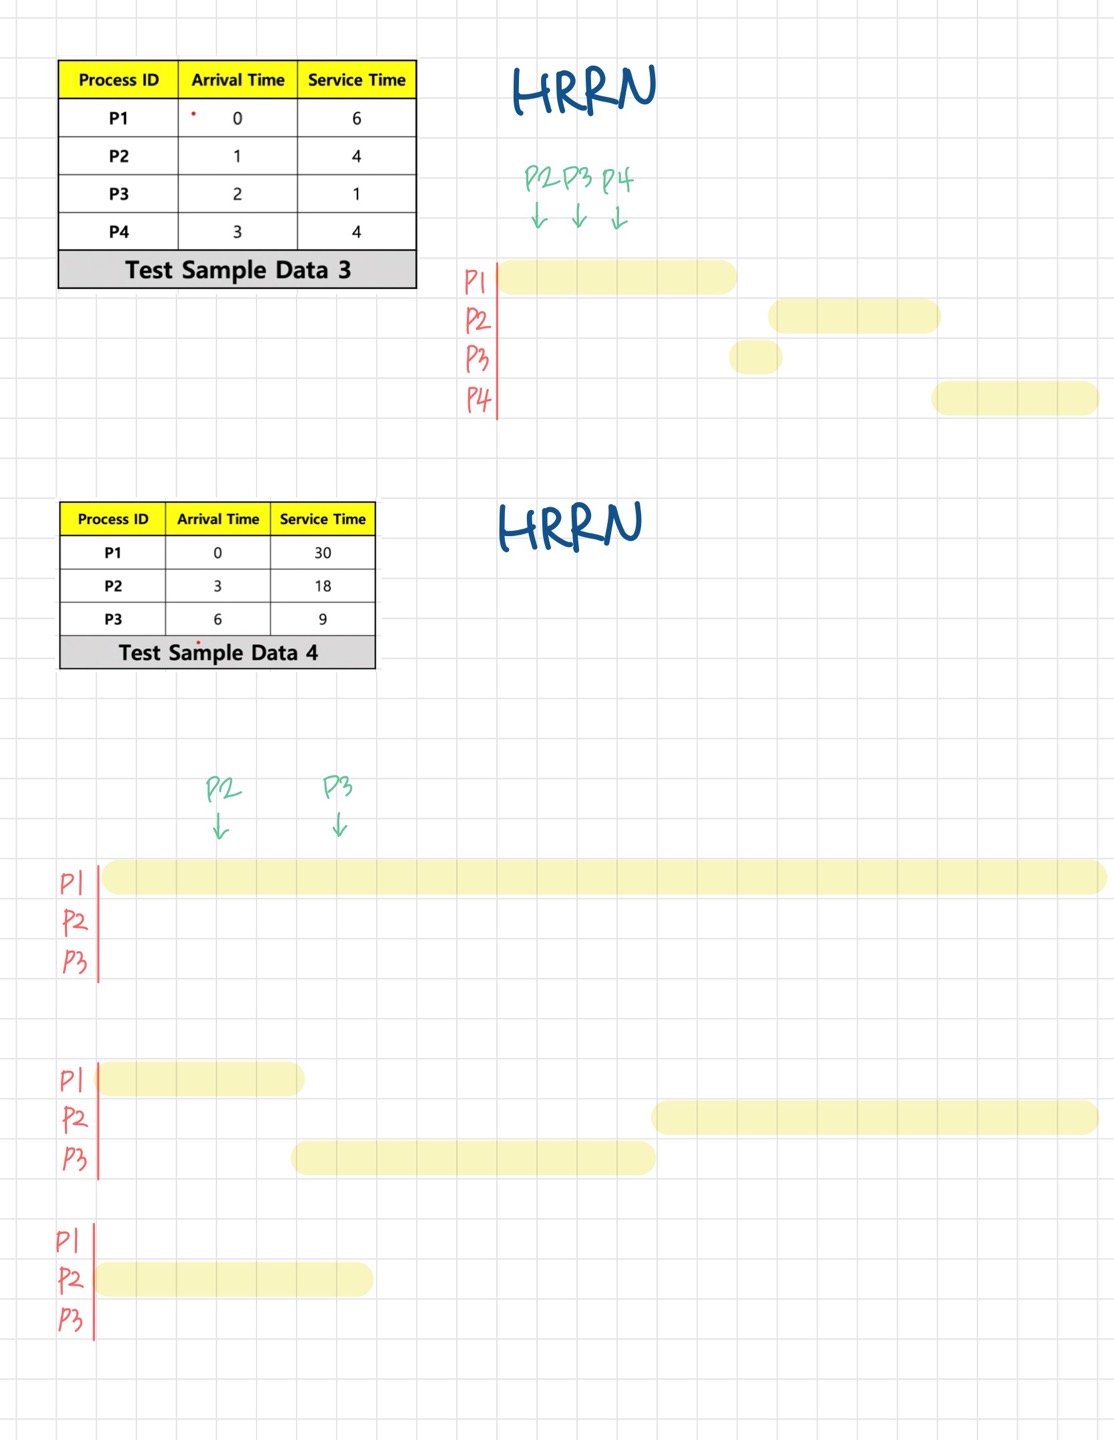 HRRN
Process ID Arrival Time Service Time
P1 0 6
P2 1 4
P3 2 1
P4 3 4
Test Sample Data 3
P2 P3 P4
P1
P2
P3
P4
HRRN
Process ID Arrival Time Service Time
P1 0 30
P2 3 18
P3 6 9
Test Sample Data 4
P2 P3
P1
P2
P3
P1
P2
P3
P1
P2
P3